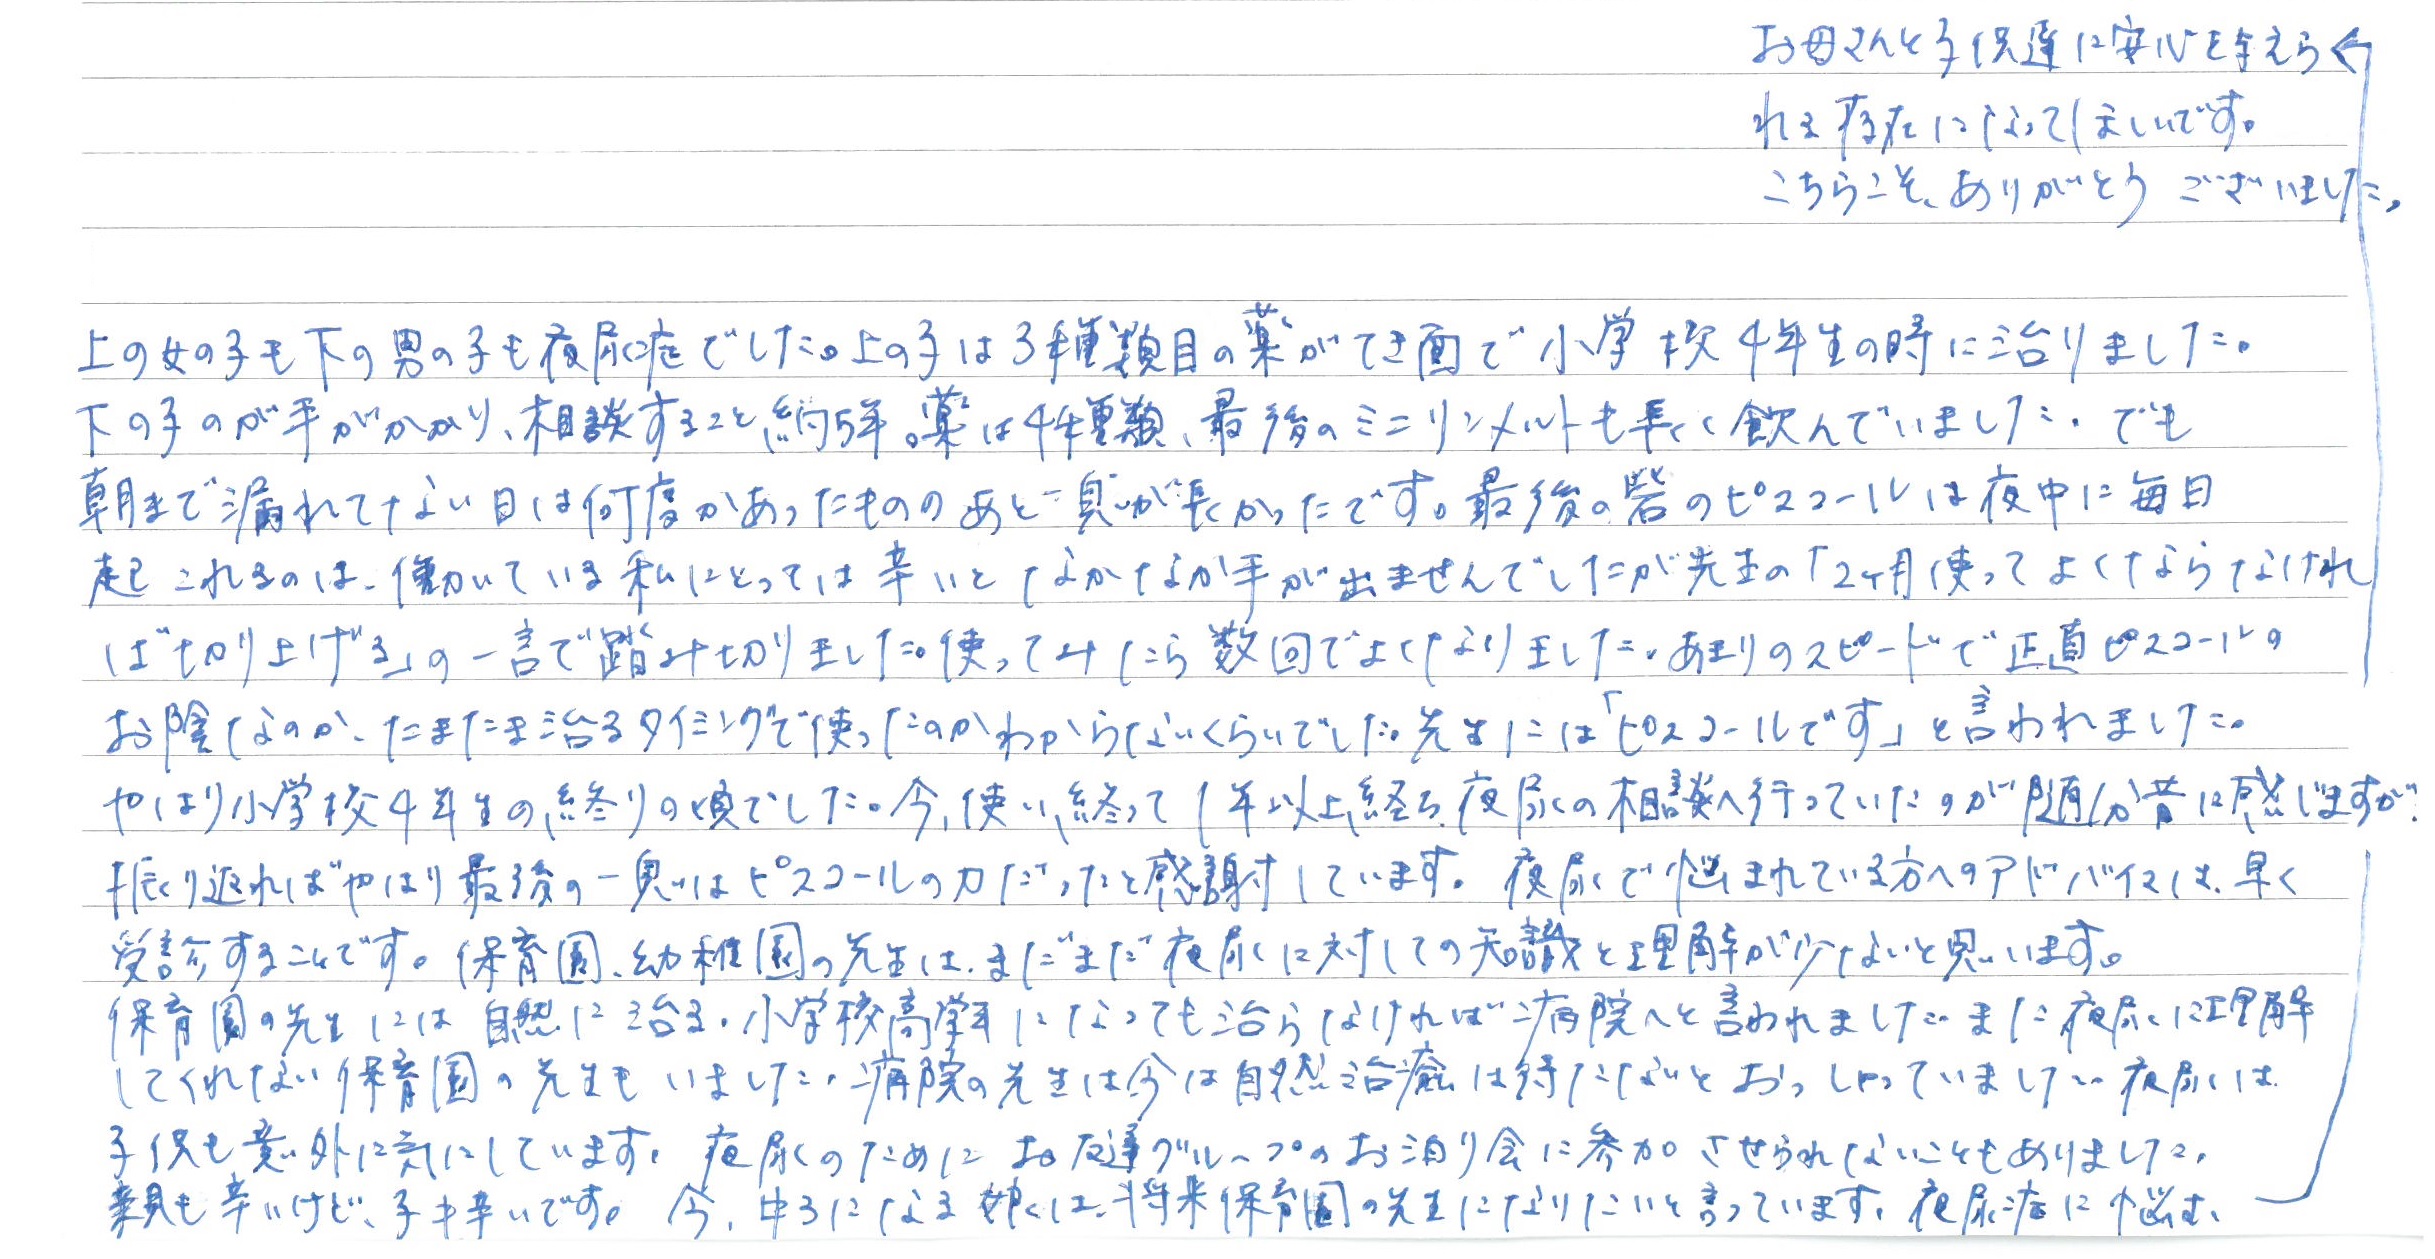 上の女の子も下の男の子も夜尿症でした。上の子は3種類目の薬がてき面で小学校4年生の時に治りました。
下の子のが手がかかり、相談すること約5年。薬は4種類、最後のミニリンメルトも長く飲んでいました。でも
朝まで漏れてない日は何度かあったもののあと一息が長かったです。最後の砦のピスコールは夜中に毎日
起これるのは、働いている私にとっては辛いとなかなか手が出ませんでしたが先生の「2ヶ月使ってよくならなけれ
ば切り上げる」の一言で踏み切りました。使ってみたら数回でよくなりました。あまりのスピードで正直ピスコールの
お陰なのか、たまたま治るタイミングで使ったのかわからないくらいでした。先生には「ピスコールです」と言われました。
やはり小学校4年生の終りの頃でした。今、使い終って1年以上経ち、夜尿の相談へ行っていたのが随分昔に感じますが、
振り返ればやはり最後の一息はピスコールの力だったと感謝しています。夜尿で悩まれている方へのアドバイスは、早く
受診することです。保育園、幼稚園の先生は、まだまだ夜尿に対しての知識と理解が少ないと思います。
保育園の先生には自然に治る。小学校高学年になっても治らなければ病院へと言われました。また夜尿に理解
してくれない保育園の先生もいました。病院の先生は今は自然治癒は待たないとおっしゃっていました。夜尿は、
子供も意外に気にしています。夜尿のためにお友達グループのお泊り会に参加させられないこともありました。
親も辛いけど、子も辛いです。今、中3になる娘は、将来保育園の先生になりたいと言っています。夜尿症に悩む、
お母さんと子供達に安心を与えら
れる存在になってほしいです。
こちらこそ、ありがとうございました。